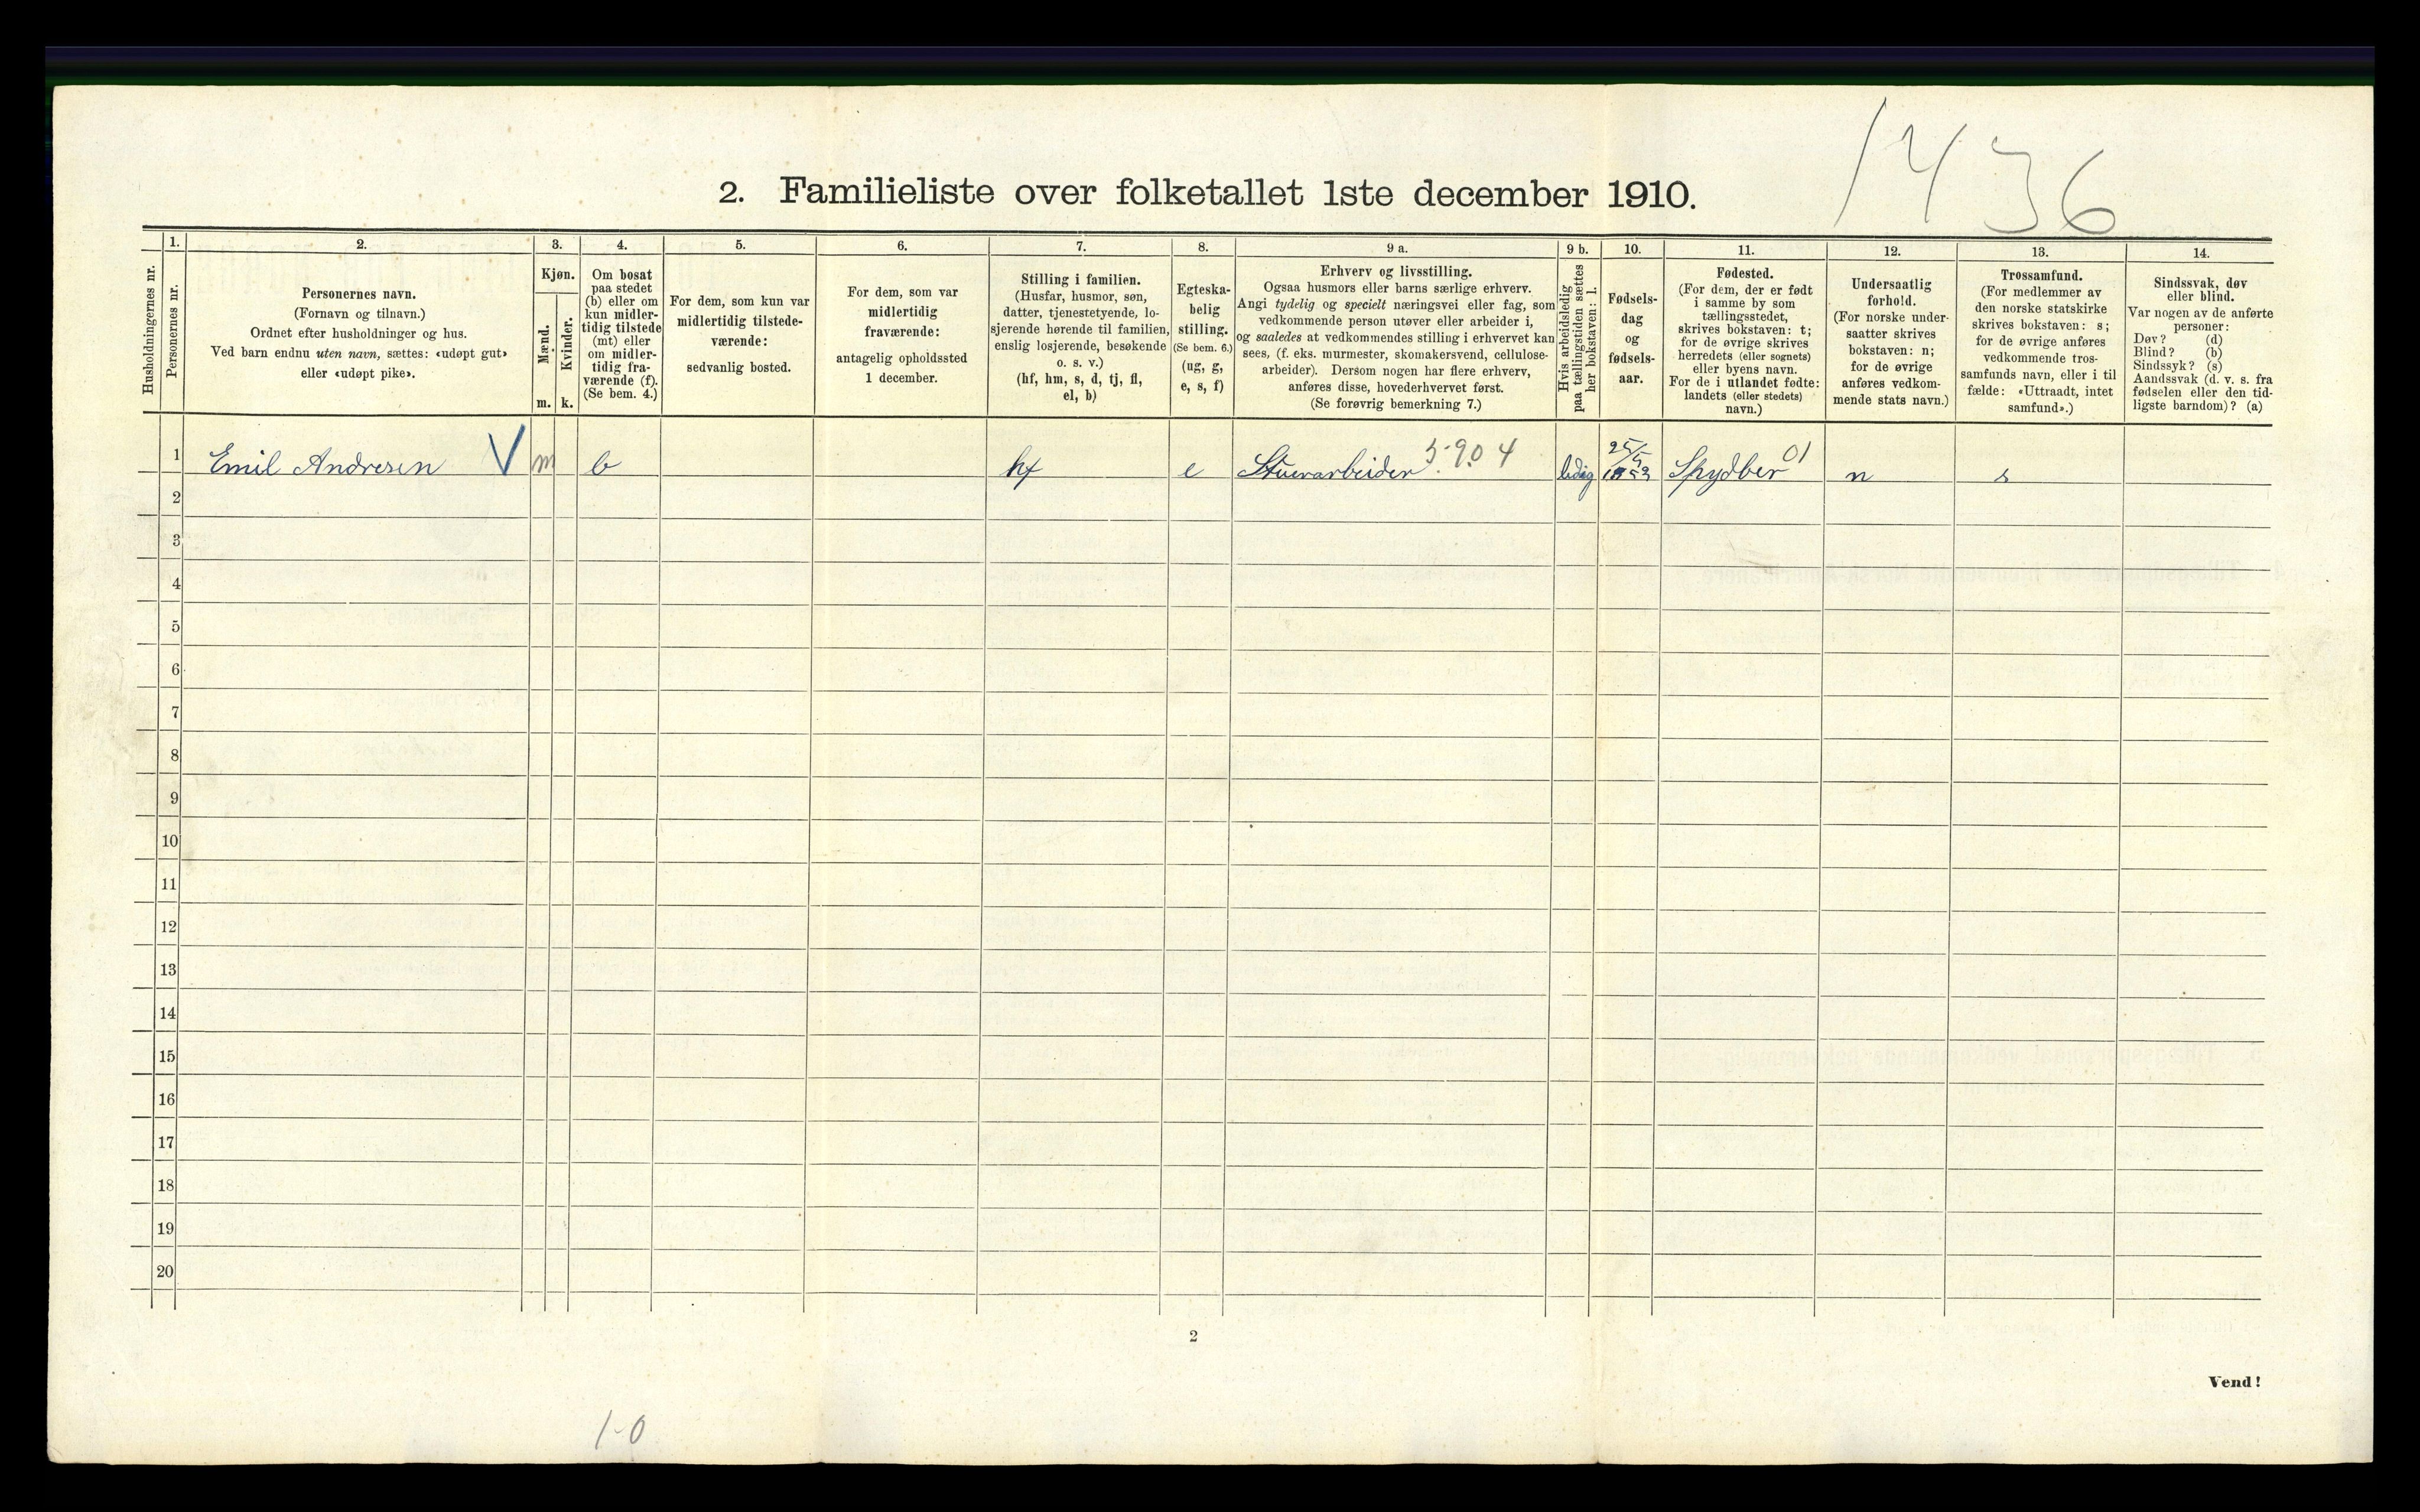 1436
2. Familieliste over folketallet 1ste december 1910.
Husholdningernes nr.
1.
Personernes nr.
2.
Personernes navn.
(Fornavn og tilnavn.)
Ordnet efter husholdninger og hus.
Ved barn endnu uten navn, sættes: «udøpt gut»
eller «udøpt pike».
3.
Kjøn.
Mænd.
Kvinder.
m.
k.
4.
Om bosat
paa stedet
(b) eller om
kun midler-
tidig tilstede
(mt) eller
om midler-
tidig fra-
værende (f).
(Se bem. 4.)
5.
For dem, som kun var
midlertidig tilstede-
værende:
sedvanlig bosted.
6.
For dem, som var
midlertidig
fraværende:
antagelig opholdssted
1 december.
7.
Stilling i familien.
(Husfar, husmor, søn,
datter, tjenestetyende, lo-
sjerende hørende til familien,
enslig losjerende, besøkende
o. s. v.)
(hf, hm, s, d, tj, fl,
el, b)
8.
Egteska-
belig
stilling.
(Se bem. 6.)
(ug, g,
e, s, f)
9 a.
Erhverv og livsstilling.
Ogsaa husmors eller barns særlige erhverv.
Angi tydelig og specielt næringsvei eller fag, som
vedkommende person utøver eller arbeider i,
og saaledes at vedkommendes stilling i erhvervet kan
sees, (f. eks. murmester, skomakersvend, cellulose-
arbeider). Dersom nogen har flere erhverv,
anføres disse, hovederhvervet først.
(Se forøvrig bemerkning 7.)
9 b.
Hvis arbeidsledig
paa tællingstiden sættes
her bokstaven: l.
10.
Fødsels-
dag
og
fødsels-
aar.
11.
Fødested.
(For dem, der er født
i samme by som
tællingsstedet,
skrives bokstaven: t;
for de øvrige skrives
herredets (eller sognets)
eller byens navn.
For de i utlandet fødte:
landets (eller stedets)
navn.)
12.
Undersaatlig
forhold.
(For norske under-
saatter skrives
bokstaven: n;
for de øvrige
anføres vedkom-
mende stats navn.)
13.
Trossamfund.
(For medlemmer av
den norske statskirke
skrives bokstaven: s;
for de øvrige anføres
vedkommende tros-
samfunds navn, eller i til
fælde: «Uttraadt, intet
samfund».)
14.
Sindssvak, døv
eller blind.
Var nogen av de anførte
personer:
Døv? (d)
Blind? (b)
Sindssyk? (s)
Aandssvak (d. v. s. fra
fødselen eller den tid-
ligste barndom)? (a)
1 Emil Andresen V m b hf e Stuerarbeider 5.90 4 ledig 25/5 Spydber 01 n s
2
3
4
5
6
7
8
9
10
11
12
13
14
15
16
17
18
19
20
2
Vend!
1-0